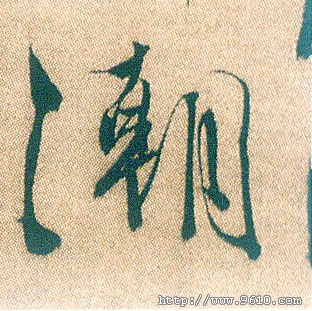 潮
http://www.9610.com